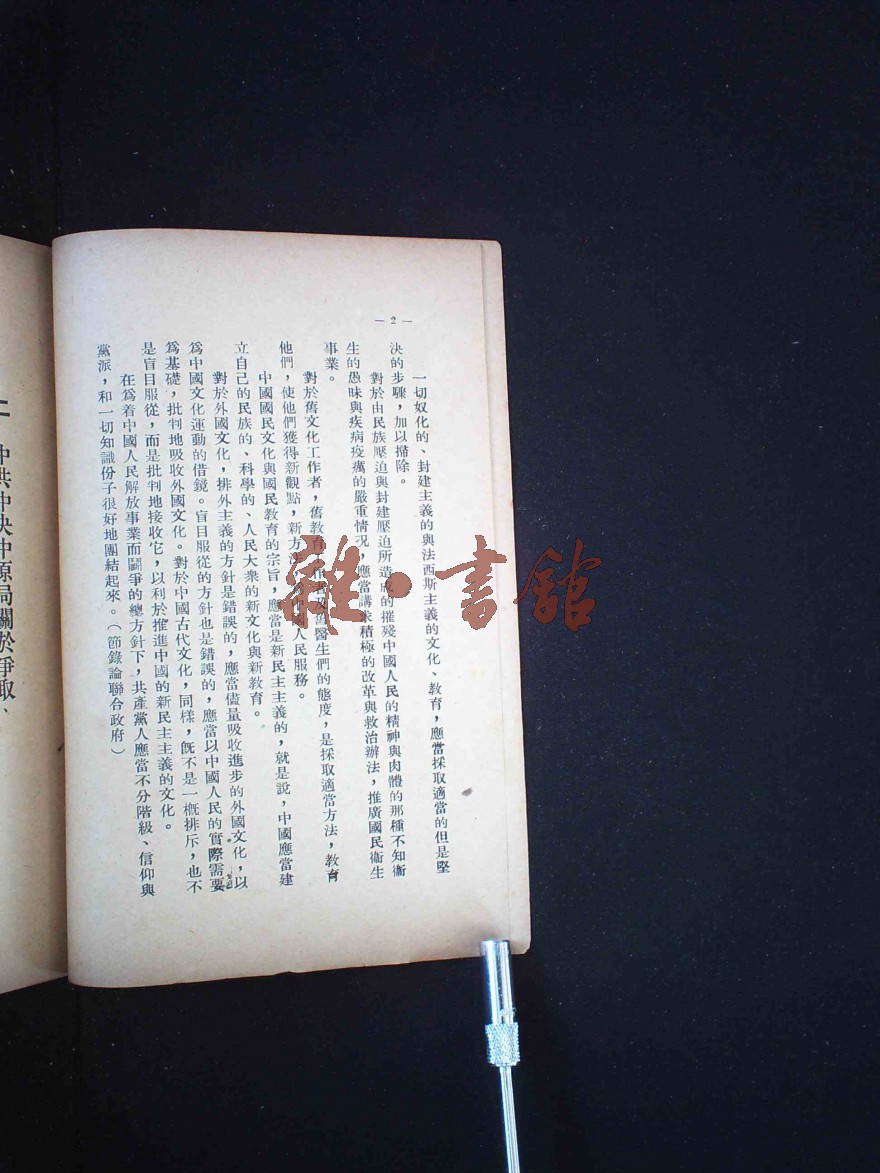 — 2 —
一切奴化的、封建主義的與法西斯主義的文化、教育，應當採取適當的但是堅
決的步驟，加以掃除。
對於由民族壓迫與封建壓迫所造成的摧殘中國人民的精神與肉體的那種不知衞
生的愚昧與疾病疫癘的嚴重情况，應當講求積極的改革與救治辦法，推廣國民衞生
事業。
對於舊文化工作者，舊教育工作者及舊醫生們的態度，是採取適當方法，教育
他們，使他們獲得新觀點，新方法，為中國人民服務。
中國國民文化與國民教育的宗旨，應當是新民主主義的，就是說，中國應當建
立自己的民族的、科學的、人民大衆的新文化與新教育。
對於外國文化，排外主義的方針是錯誤的，應當儘量吸收進步的外國文化，以
爲中國文化運動的借鏡。盲目服從的方針也是錯誤的，應當以中國人民的實際需要
爲基礎，批判地吸收外國文化。對於中國古代文化，同樣，旣不是一概排斥，也不
是盲目服從，而是批判地接收它，以利於推進中國的新民主主義的文化。
在爲着中國人民解放事業而鬭爭的總方針下，共產黨人應當不分階級、信仰與
黨派，和一切知識份子很好地團結起來。（節錄論聯合政府）
二 中共中央中原局關於爭取、
雜·書館